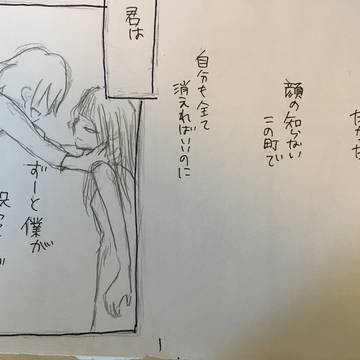 顔の知らない
この町で
自分も全て
消えればいいのに
君は
ずーと僕が